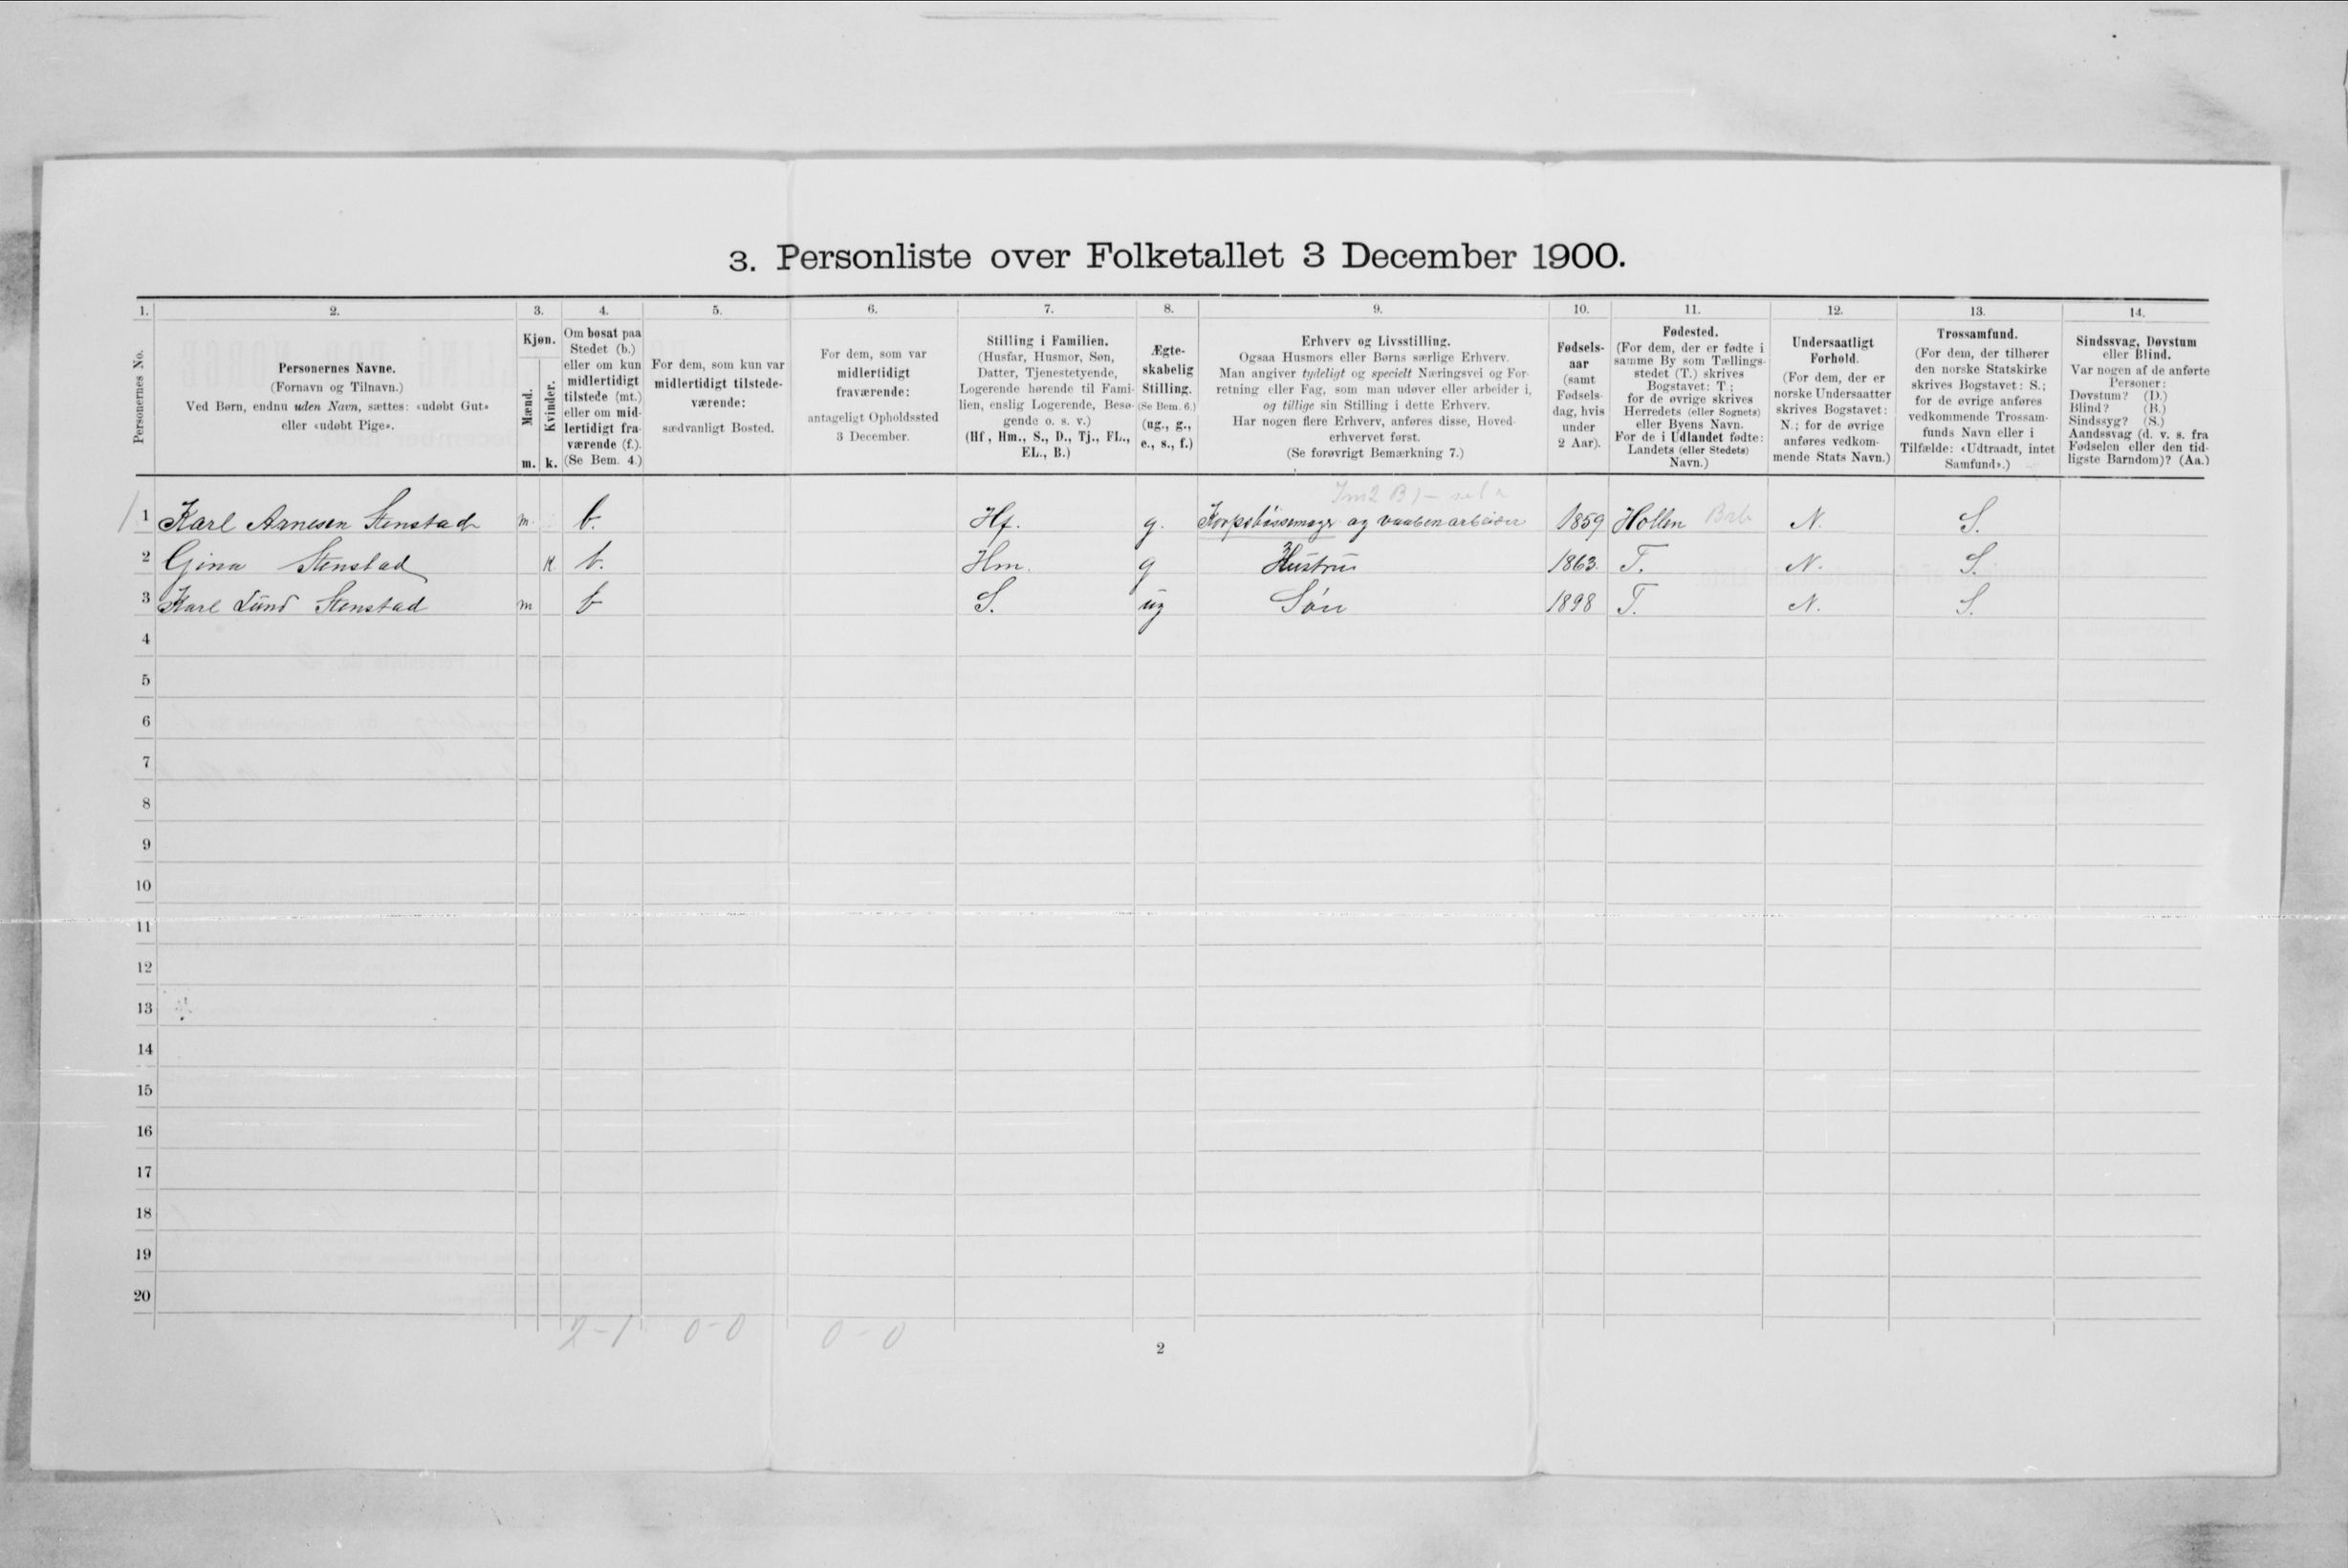 3. Personliste over Folketallet 3 December 1900.
1. 2. 3. 4. 5. 6. 7. 8. 9. 10. 11. 12. 13. 14.
Personernes No.
Personernes Navne.
(Fornavn og Tilnavn.)
Ved Børn, endnu uden Navn, sættes: «udøbt Gut»
eller «udøbt Pige».
Kjøn.
Mænd.
Kvinder.
m. k.
Om bosat paa
Stedet (b.)
eller om kun
midlertidigt
tilstede (mt.)
eller om mid-
lertidigt fra-
værende (f.).
(Se Bem. 4.)
For dem, som kun var
midlertidigt tilstede-
værende:
sædvanligt Bosted.
For dem, som var
midlertidigt
fraværende:
antageligt Opholdssted
3 December.
Stilling i Familien.
(Husfar, Husmor, Søn,
Datter, Tjenestetyende,
Logerende hørende til Fami-
lien, enslig Logerende, Besø-
gende o. s. v.)
(Hf, Hm., S., D., Tj., FL.,
EL., B.)
Ægte-
skabelig
Stilling.
(Se Bem. 6.)
(ug., g.,
e., s., f.)
Erhverv og Livsstilling.
Ogsaa Husmors eller Børns særlige Erhverv.
Man angiver tydeligt og specielt Næringsvei og For-
retning eller Fag, som man udøver eller arbeider i,
og tillige sin Stilling i dette Erhverv.
Har nogen flere Erhverv, anføres disse, Hoved-
erhvervet først.
(Se forøvrigt Bemærkning 7.)
Fødsels-
aar
(samt
Fødsels-
dag, hvis
under
2 Aar).
Fødested.
(For dem, der er fødte i
samme By som Tællings-
stedet (T.) skrives
Bogstavet: T;
for de øvrige skrives
Herredets (eller Sognets)
eller Byens Navn.
For de i Udlandet fødte:
Landets (eller Stedets)
Navn.)
Undersaatligt
Forhold.
(For dem, der er
norske Undersaatter
skrives Bogstavet:
N.; for de øvrige
anføres vedkom-
mende Stats Navn.)
Trossamfund.
(For dem, der tilhører
den norske Statskirke
skrives Bogstavet: S.;
for de øvrige anføres
vedkommende Trossam-
funds Navn eller i
Tilfælde: «Udtraadt, intet
Samfund».)
Sindssvag, Døvstum
eller Blind.
Var nogen af de anførte
Personer:
Døvstum? (D.)
Blind? (B.)
Sindssyg? (S.)
Aandssvag (d. v. s. fra
Fødselen eller den tid-
ligste Barndom)? (Aa.)
1 Karl Arnesen Stenstad m. b. Hf. g. Korpsbøssemager og vaabenarbeider 1859 Hollen N. S.
2 Gina Stenstad K. b. Hm. g Hustru 1863. T. N. S.
3 Karl Lund Stenstad m b S. ug Søn 1898 T. N. S.
4
5
6
7
8
9
10
11
12
13
14
15
16
17
18
19
20
2-1 0-0 0-0
2